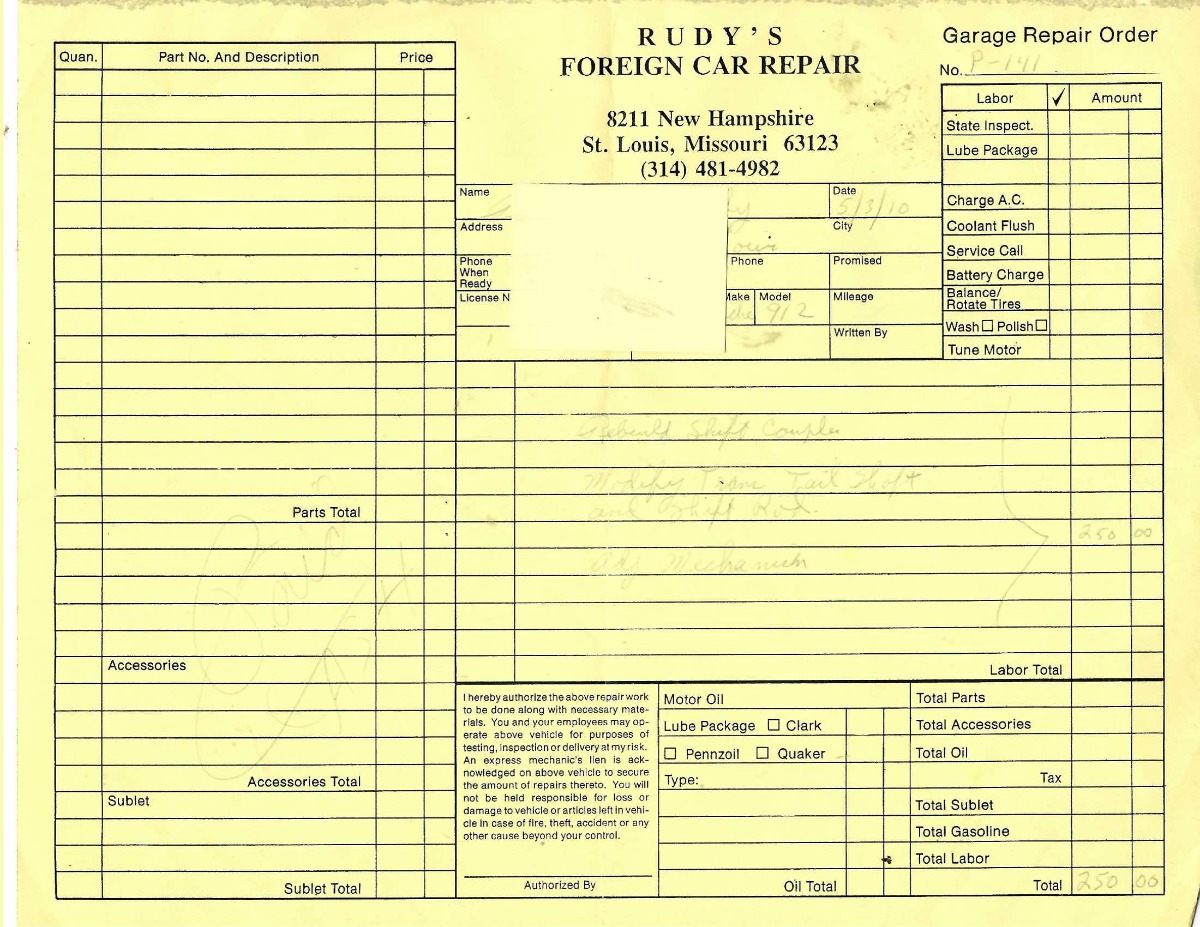 RUDY'S
FOREIGN CAR REPAIR
8211 New Hampshire
St. Louis, Missouri 63123
(314) 481-4982
Garage Repair Order
No. P-141
Quan. Part No. And Description Price
Parts Total
Accessories
Accessories Total
Sublet
Sublet Total
Name
Date 5/3/10
Address
City
Phone When Ready
Phone
Promised
License N
Make
Model 912
Mileage
Written By
Labor ✓ Amount
State Inspect.
Lube Package
Charge A.C.
Coolant Flush
Service Call
Battery Charge
Balance/
Rotate Tires
Wash ☐ Polish ☐
Tune Motor
Rebuild Shift Coupler
Modify Trans Tail Shaft
and Shift Rod.
250 00
Adj Mechanism
Labor Total
Paid
I hereby authorize the above repair work
to be done along with necessary mate-
rials. You and your employees may op-
erate above vehicle for purposes of
testing, inspection or delivery at my risk.
An express mechanic's lien is ack-
nowledged on above vehicle to secure
the amount of repairs thereto. You will
not be held responsible for loss or
damage to vehicle or articles left in vehi-
cle in case of fire, theft, accident or any
other cause beyond your control.
Authorized By
Motor Oil
Lube Package ☐ Clark
☐ Pennzoil ☐ Quaker
Type:
Oil Total
Total Parts
Total Accessories
Total Oil
Tax
Total Sublet
Total Gasoline
Total Labor
Total 250 00